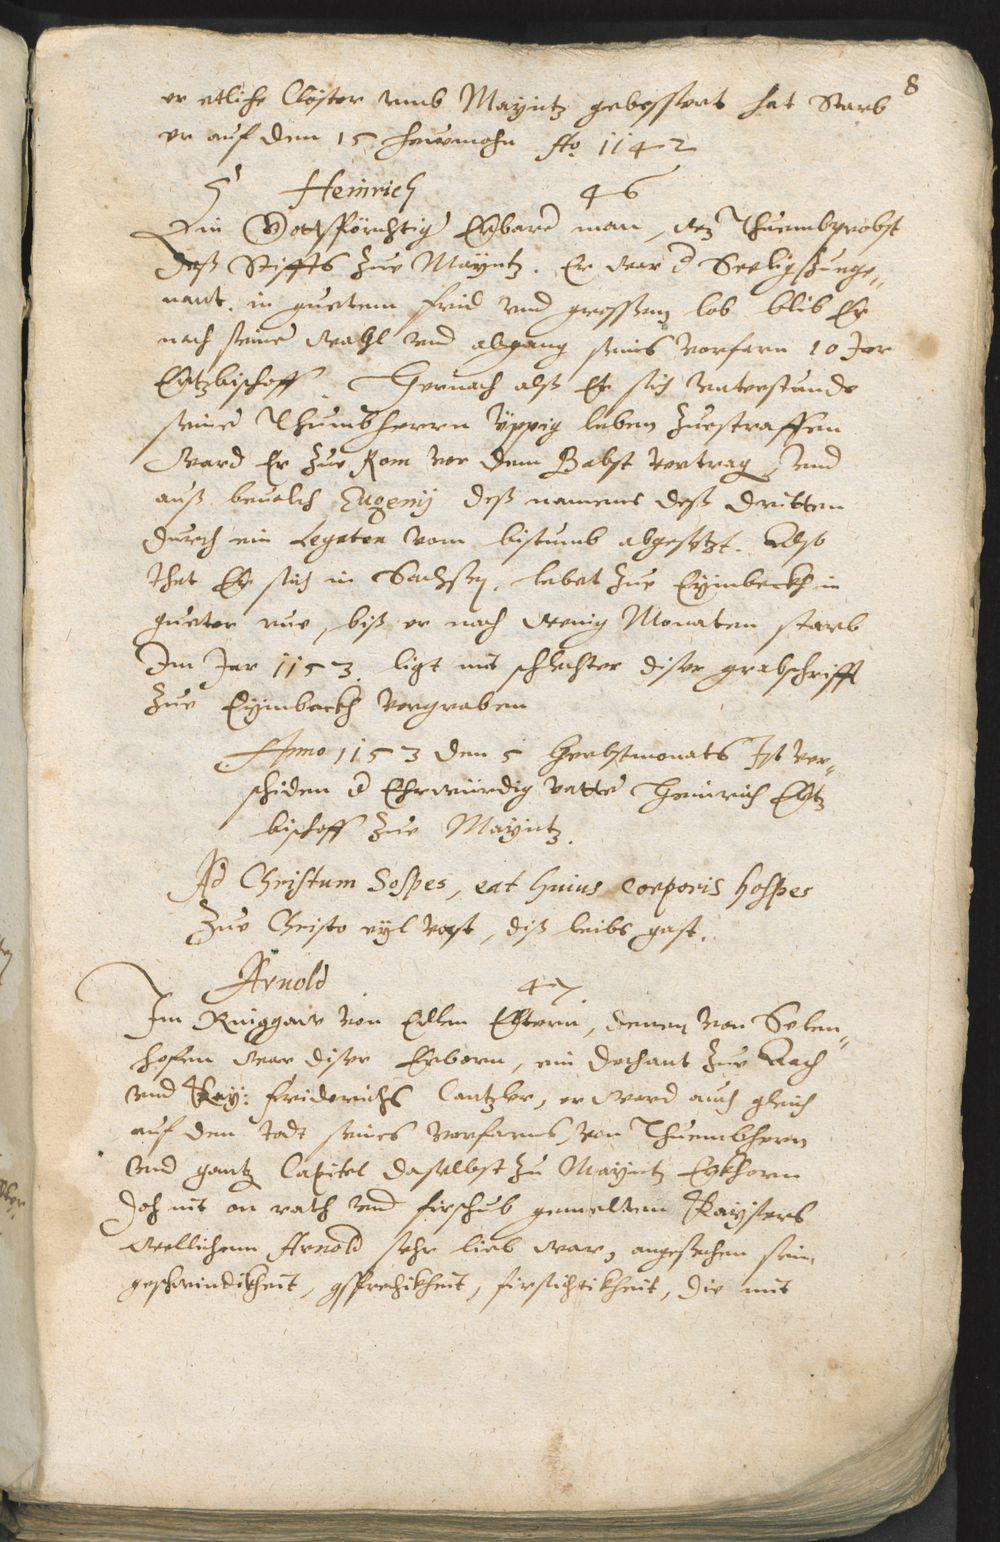 8
er etliche Clöster vmb Mayntz gebessert hat Starb
er auf den 15 Hewmohn Ao 1142
Heinrich 46
Ein Gottsförchtig Erbare man, Thuembprobst
deß Stiffts zue Mayntz. Er war d Seelig zuege„
nant. in guetem frid vnd grossem lob blib Er
nach seiner Wahl vnd abgang seines vorfarn 10 Jar
Ertzbischoff. Hernach alß Er sich vnterstunde
seiner Thumbherrn üppig leben zuestraffen
Ward Er zue Rom vor dem Babst vertrag, vnd
auß beuelch Eugenij deß namens deß dritten
durch ein Legaten vom bistumb abgesetzt. Also
that Er sich in Sachsen, lebet zue Eymbeckh in
gueter rue, biß er nach wenig Monaten starb
Im Jar 1153. ligt mit schlechter diser grabschrifft
zue Eymbeckh vergraben
Anno 1153 den 5 Herbstmonats Ist ver„
schiden d Ehrwürdig vatter Heinrich Ertz
bischoff zue Mayntz.
Ad Christum Sospes, eat huius corporis hospes
Zue Christo eyl vast, diß leibs gast.
Arnold 47.
Im Ringgaw von Edlen Eltern, denen von Selen„
hofen war diser Erborn, ein dechant zue Aach
vnd Kay: Friderichs Cantzler, er ward auch gleich
auf den todt seines vorfarns, von Thuembhern
vnd gantz Capitel daselbst zu Mayntz Erkhorn
doch nit on rath vnd firschub gemelten Kaysers
wellichem Arnold sehr lieb war, angesechen sein
geschwindikheit, gsprechikheit, firsichtikheit, die mit